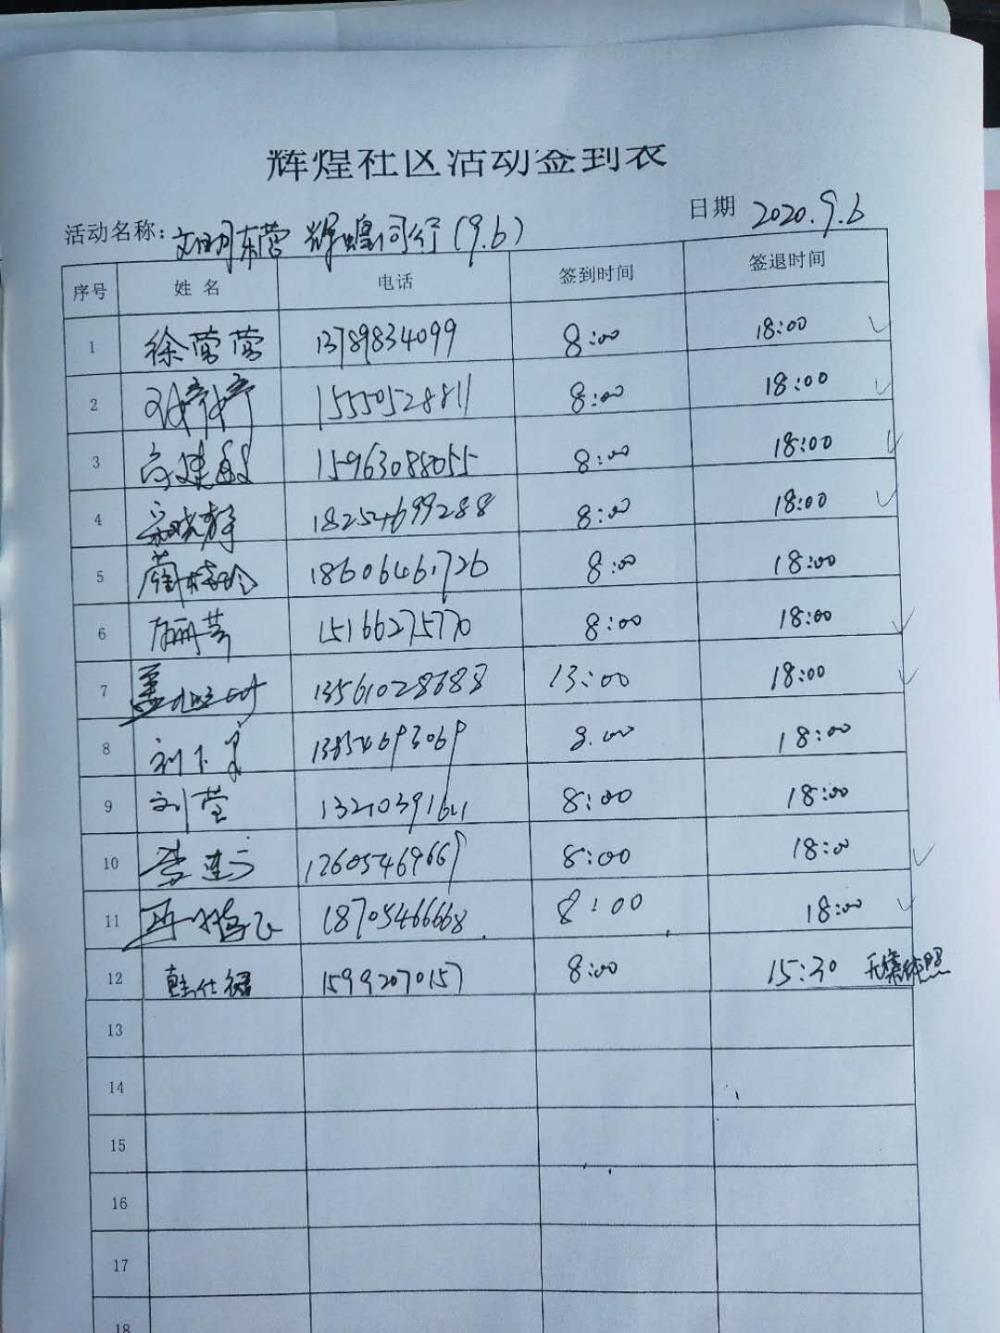 辉煌社区活动签到表
活动名称: 文明东营 辉煌同行(9.6) 日期 2020.9.6
序号 姓 名 电话 签到时间 签退时间
1 徐莺莺 13789834099 8:00 18:00
2 刘婷婷 15550528811 8:00 18:00
3 15963088055 8:00 18:00
4 18254699288 8:00 18:00
5 18606461726 8:00 18:00
6 15166275770 8:00 18:00
7 13561028688 13:00 18:00
8 刘 13854693069 8:00 18:00
9 刘莹 13210391611 8:00 18:00
10 17605469669 8:00 18:00
11 18705466668 8:00 18:00
12 韩仕禄 15992070157 8:00 15:30 无集体照
13
14
15
16
17
18